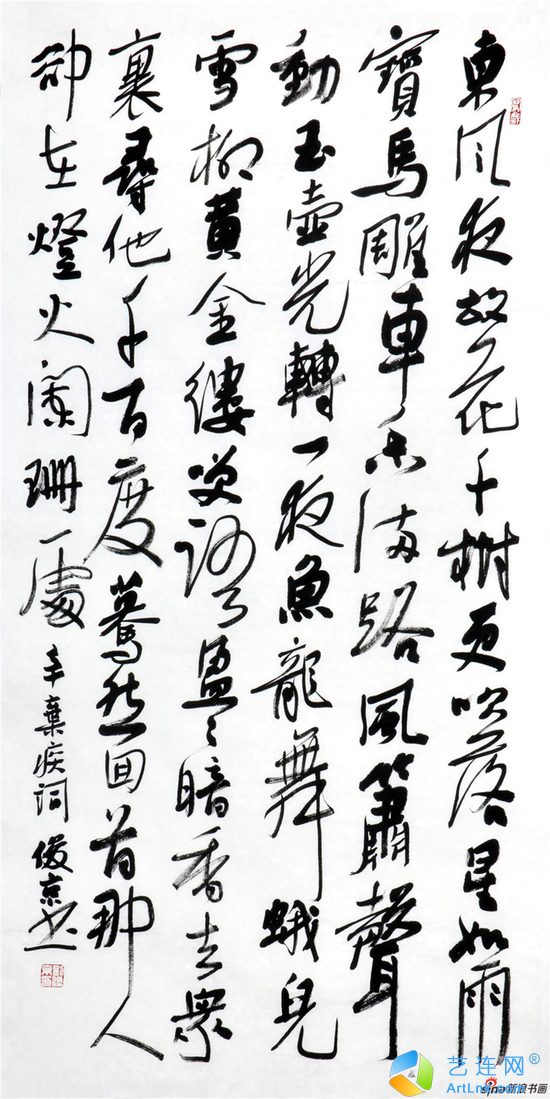 東风夜放花千樹更吹落星如雨
寶馬雕車香滿路鳳簫聲
動玉壺光轉一夜魚龍舞蛾兒
雪柳黃金縷笑語盈々暗香去眾
裏尋他千百度驀然回首那人
卻在燈火闌珊處
辛棄疾詞 俊京书
艺连网®
ArtLng.com
sina新浪书画